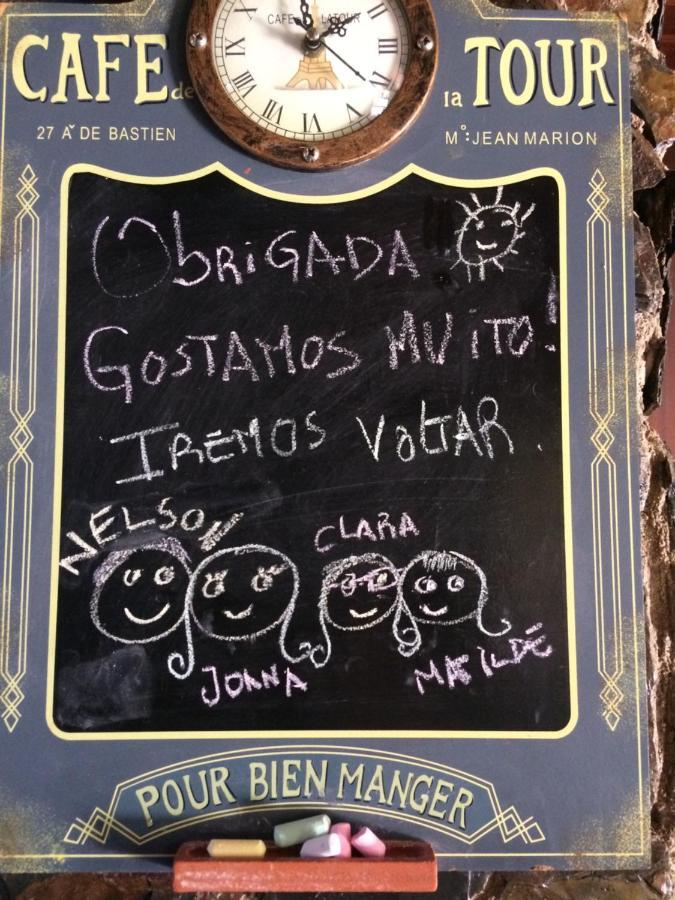 CAFE LATOUR
CAFE de la TOUR
27 Aˇ DE BASTIEN
M°: JEAN MARION
OBRIGADA
GOSTAMOS MUITO!
IREMOS VOLTAR.
NELSON
CLARA
JOANA
MATILDE
POUR BIEN MANGER